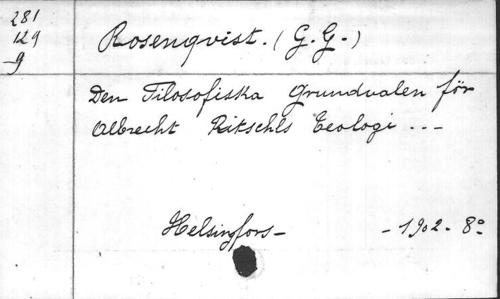 281
129
9
Rosenqvist. (G. G.)
Den Filosofiska Grundvalen för
Albrecht Ritschls Teologi ...
Helsingfors - - 1902. 8°